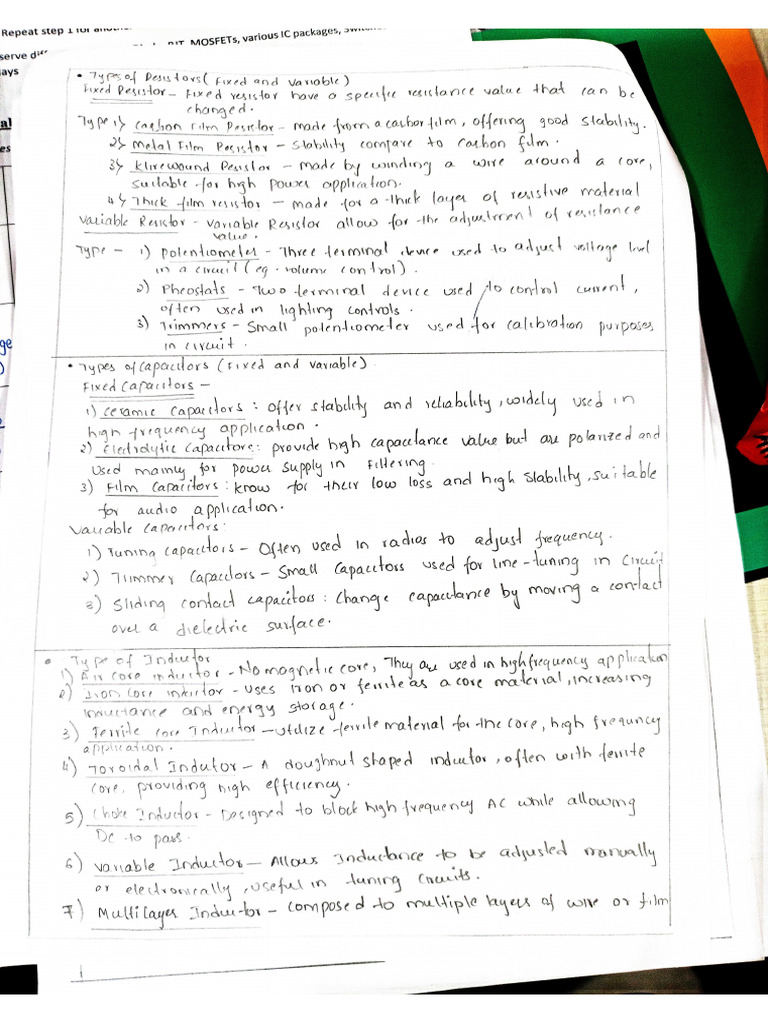 Repeat step 1 for
MOSFETs, various IC packages,
• Types of Resistors (Fixed and Variable)
Fixed Resistor - Fixed resistor have a specific resistance value that can be
changed.
Type 1) Carbon Film Resistor - made from a carbon film, offering good stability.
2) Metal Film Resistor - Stability compare to Carbon film.
3) Wirewound Resistor - made by winding a wire around a core,
suitable for high power application.
4) Thick film resistor - made for a thick layer of resistive material
Variable Resistor - Variable Resistor allow for the adjustment of resistance
value.
Type - 1) Potentiometer - Three terminal device used to adjust voltage level
in a circuit (eg. volume control).
2) Rheostats - Two terminal device used to control current,
often used in lighting controls.
3) Trimmers - Small potentiometer used for calibration purposes
in circuit.
• Types of Capacitors (Fixed and Variable)
Fixed Capacitors -
1) Ceramic Capacitors : Offer stability and reliability, widely used in
high frequency application.
2) Electrolytic Capacitore : provide high capacitance value but are polarized and
used mainly for power supply in filtering.
3) Film Capacitors : know for their low loss and high stability, suitable
for audio application.
Variable Capacitors :
1) Tuning capacitors - Often used in radios to adjust frequency.
2) Trimmer Capacitors - Small capacitors used for line-tuning in circuit
3) Sliding contact capacitors : Change capacitance by moving a contact
over a dielectric surface.
• Type of Inductor
1) Air core inductor - No magnetic core, They are used in high frequency application
2) Iron Core inductor - Uses Iron or ferrite as a core material, increasing
inductance and energy storage.
3) Ferrite core Inductor - utilize ferrite material for the core, high frequncy
application.
4) Toroidal Indutor - A doughnut shaped inductor, often with ferrite
core, providing high efficiency.
5) Choke Inductor - Designed to block high frequency AC while allowing
DC to pass.
6) Variable Inductor - Allows Inductance to be adjusted manually
or electronically, useful in tuning circuits.
7) Multilayer Inductor - composed to multiple layers of wire or film